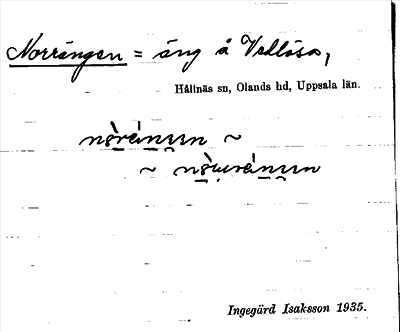 Norrängen = äng å Vallösa,
Hållnäs sn, Olands hd, Uppsala län.
~
~
Ingegärd Isaksson 1935.